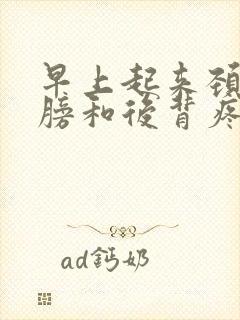 早上起来頚
膀和後背疼
ad鈣奶